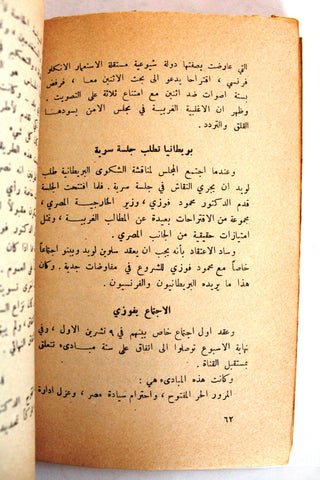 التي عارضت بصفتها دولة شيوعية مستقلة الاستعمار الانكلو
فرنسي ، اقتراحا يدعو الى بحث الاثنين معا ، فرفض
بستة اصوات ضد اثنين مع امتناع ثلاثة على التصويت .
وظهر ان الاغلبية الغربية في مجلس الامن يسودها
القلق والتردد .
بريطانيا تطلب جلسة سرية
وعندما اجتمع المجلس لمناقشة الشكوى البريطانية طلب
لويد ان يجري النقاش في جلسة سرية . فلما افتتحت الجلسة
قدم الدكتور محمود فوزي ، وزير الخارجية المصري ،
مجموعة من الاقتراحات بعيدة عن المطالب الغربية ، وتمثل
امتيازات حقيقية من الجانب المصري .
وساد الاعتقاد بأنه يجب ان يعقد سلوين لويد وبينو اجتماعاً
خاصاً مع محمود فوزي للشروع في مفاوضات جدية . وكان
هذا ما يريده البريطانيون والفرنسيون .
الاجتماع بفوزي
وعقد اول اجتماع خاص بينهم في ٩ تشرين الاول ، وفي
نهاية الاسبوع توصلوا الى اتفاق على ستة مبادىء تتعلق
بمستقبل القناة .
وكانت هذه المبادىء هي :
المرور الحر المفتوح ، واحترام سيادة مصر ، وعزل ادارة
٦٢